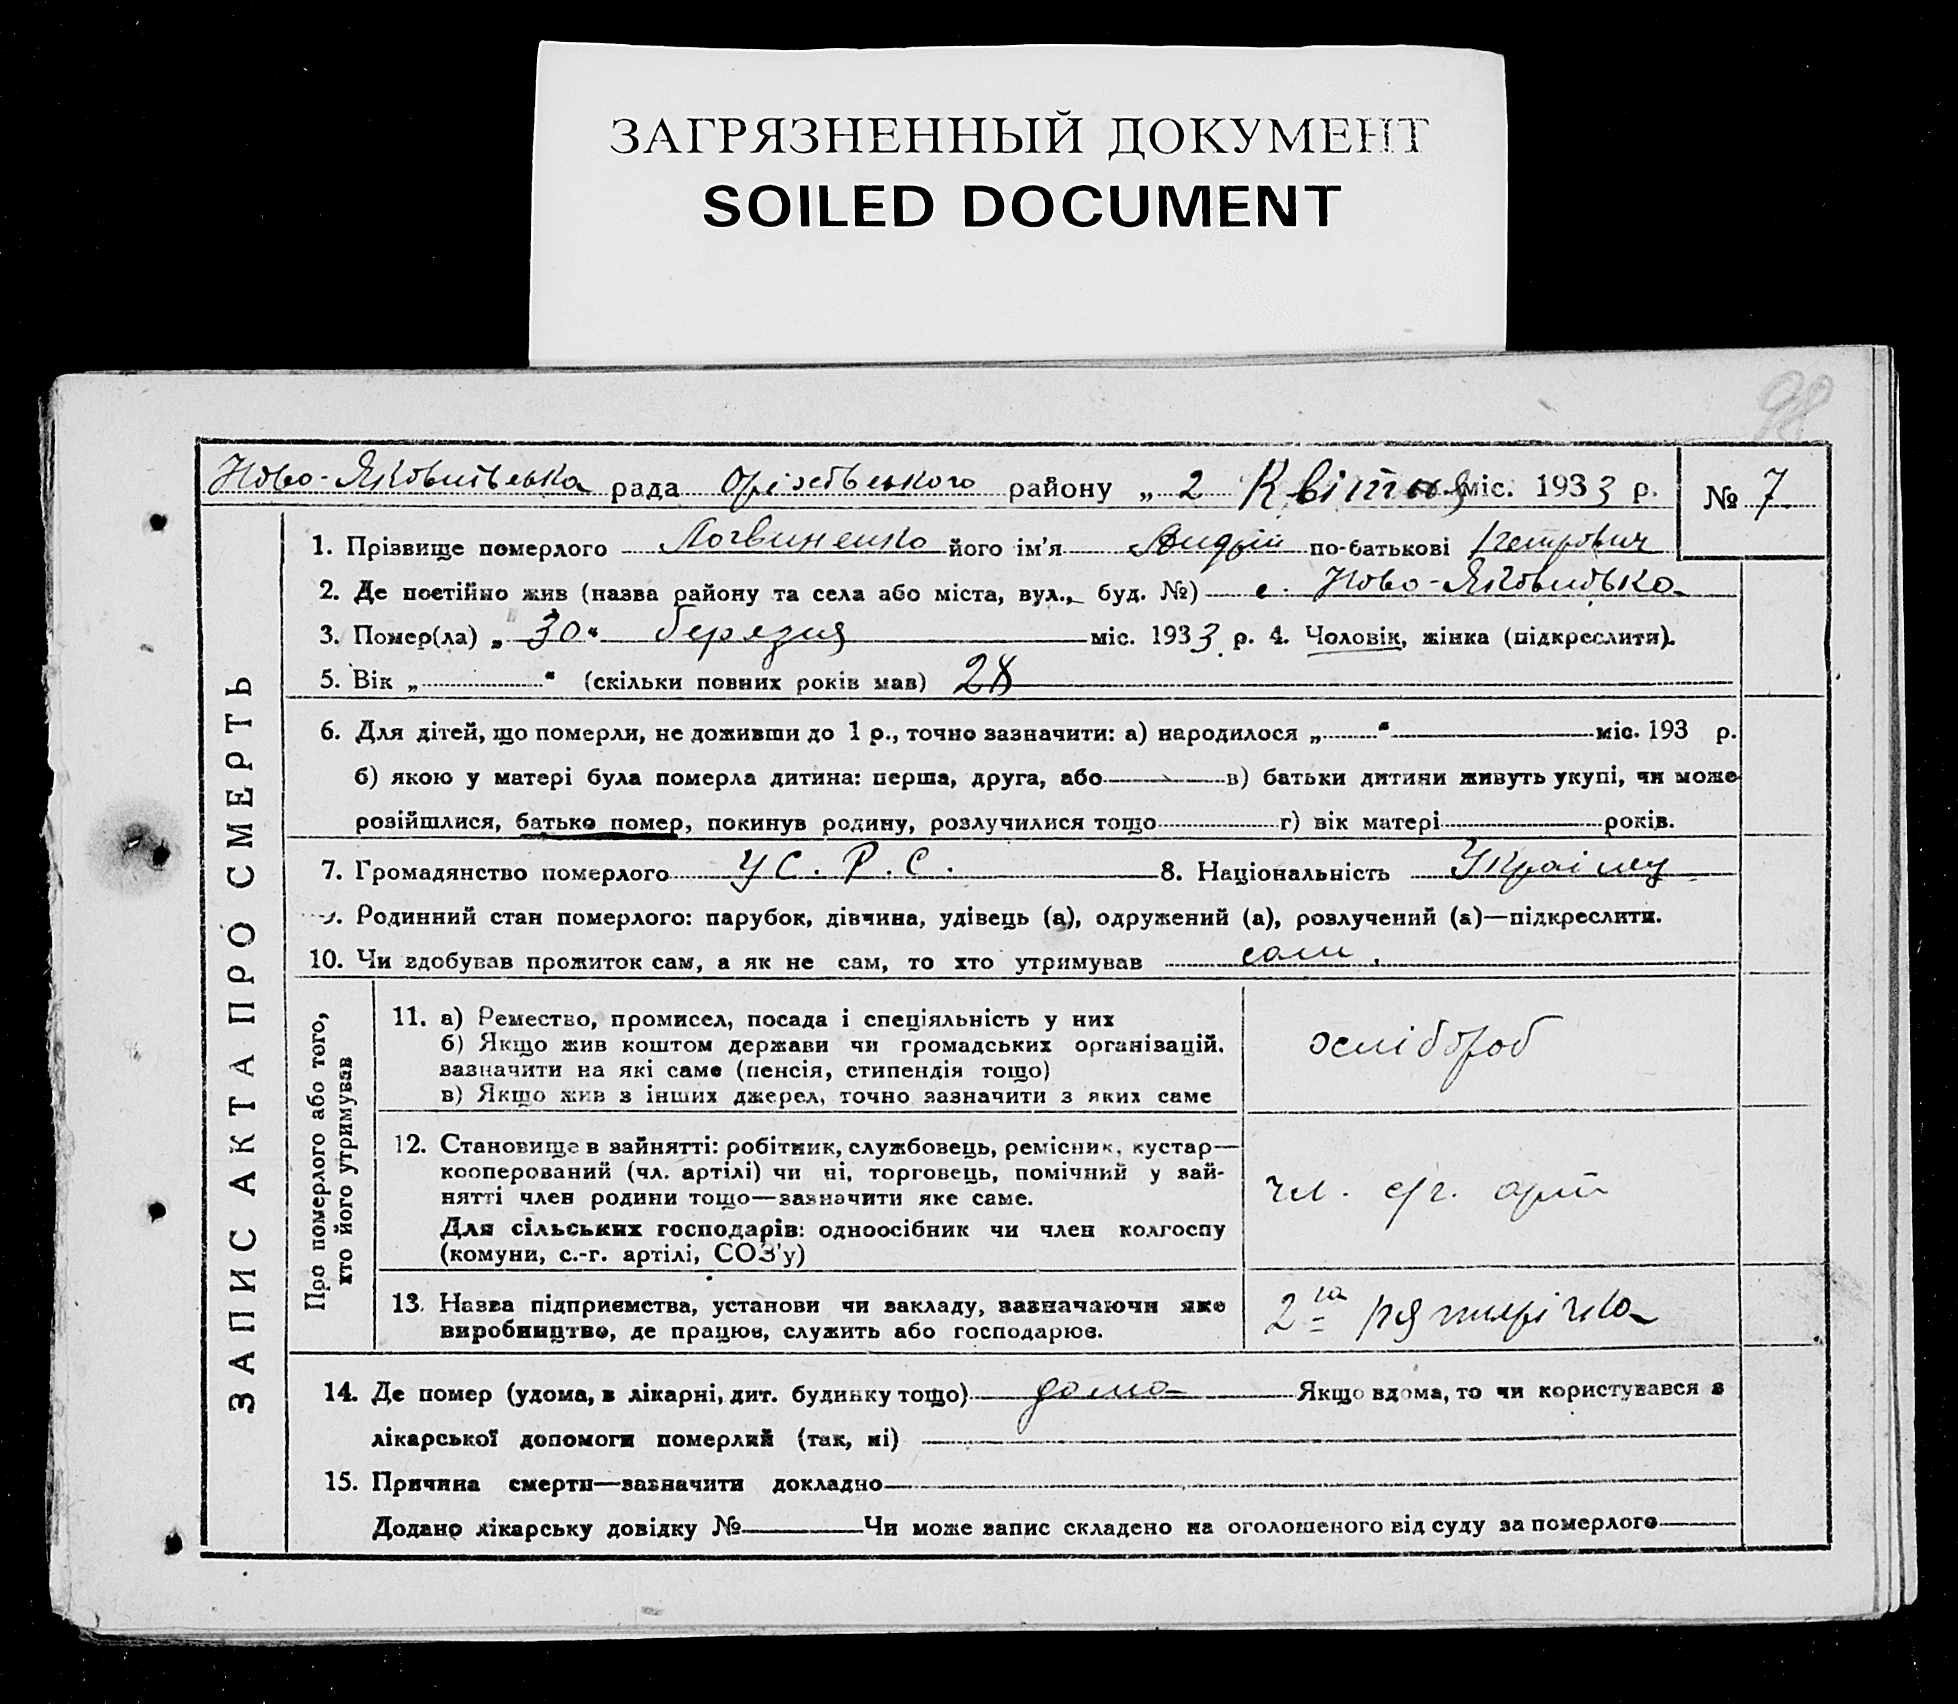 ЗАГРЯЗНЕННЫЙ ДОКУМЕНТ
SOILED DOCUMENT
98
Ново-Яковлівська рада Оріхівського району „ 2 Квітня міс. 1933 р.
№ 7
ЗАПИС АКТА ПРО СМЕРТЬ
1. Прізвище померлого Логвиненко його ім'я Андрій по-батькові Петрович
2. Де постійно жив (назва району та села або міста, вул., буд. №) с. Ново-Яковлівка
3. Помер(ла) „ 30 “ березня міс. 1933 р. 4. Чоловік, жінка (підкреслити).
5. Вік „ “ (скільки повних років мав) 28
6. Для дітей, що померли, не доживши до 1 р., точно зазначити: а) народилося „ “ міс. 193 р.
б) якою у матері була померла дитина: перша, друга, або в) батьки дитини живуть укупі, чи може
розійшлися, батько помер, покинув родину, розлучилися тощо г) вік матері років.
7. Громадянство померлого У С. Р. С. 8. Національність
9. Родинний стан померлого: парубок, дівчина, удівець (а), одружений (а), розлучений (а)—підкреслити.
10. Чи здобував прожиток сам, а як не сам, то хто утримував сам.
Про померлого або того,
хто його утримував
11. а) Ремество, промисел, посада і спеціяльність у них
б) Якщо жив коштом держави чи громадських організацій.
зазначити на які саме (пенсія, стипендія тощо)
в) Якщо жив з інших джерел, точно зазначити з яких саме
хлібороб
12. Становище в зайнятті: робітник, службовець, ремісник, кустар—
кооперований (чл. артілі) чи ні, торговець, помічний у зай-
нятті член родини тощо—зазначити яке саме.
Для сільських господарів: одноосібник чи член колгоспу
(комуни, с.-г. артілі, СОЗ'у)
чл. с/г. арт
13. Назва підприємства, установи чи закладу, зазначаючи яке
виробництво, де працює, служить або господарює.
2 га пятирічка
14. Де помер (удома, в лікарні, дит. будинку тощо) дома Якщо вдома, то чи користувався з
лікарської допомоги померлий (так, ні)
15. Причина смерти—зазначити докладно
Додано лікарську довідку № Чи може запис складено на оголошеного від суду за померлого